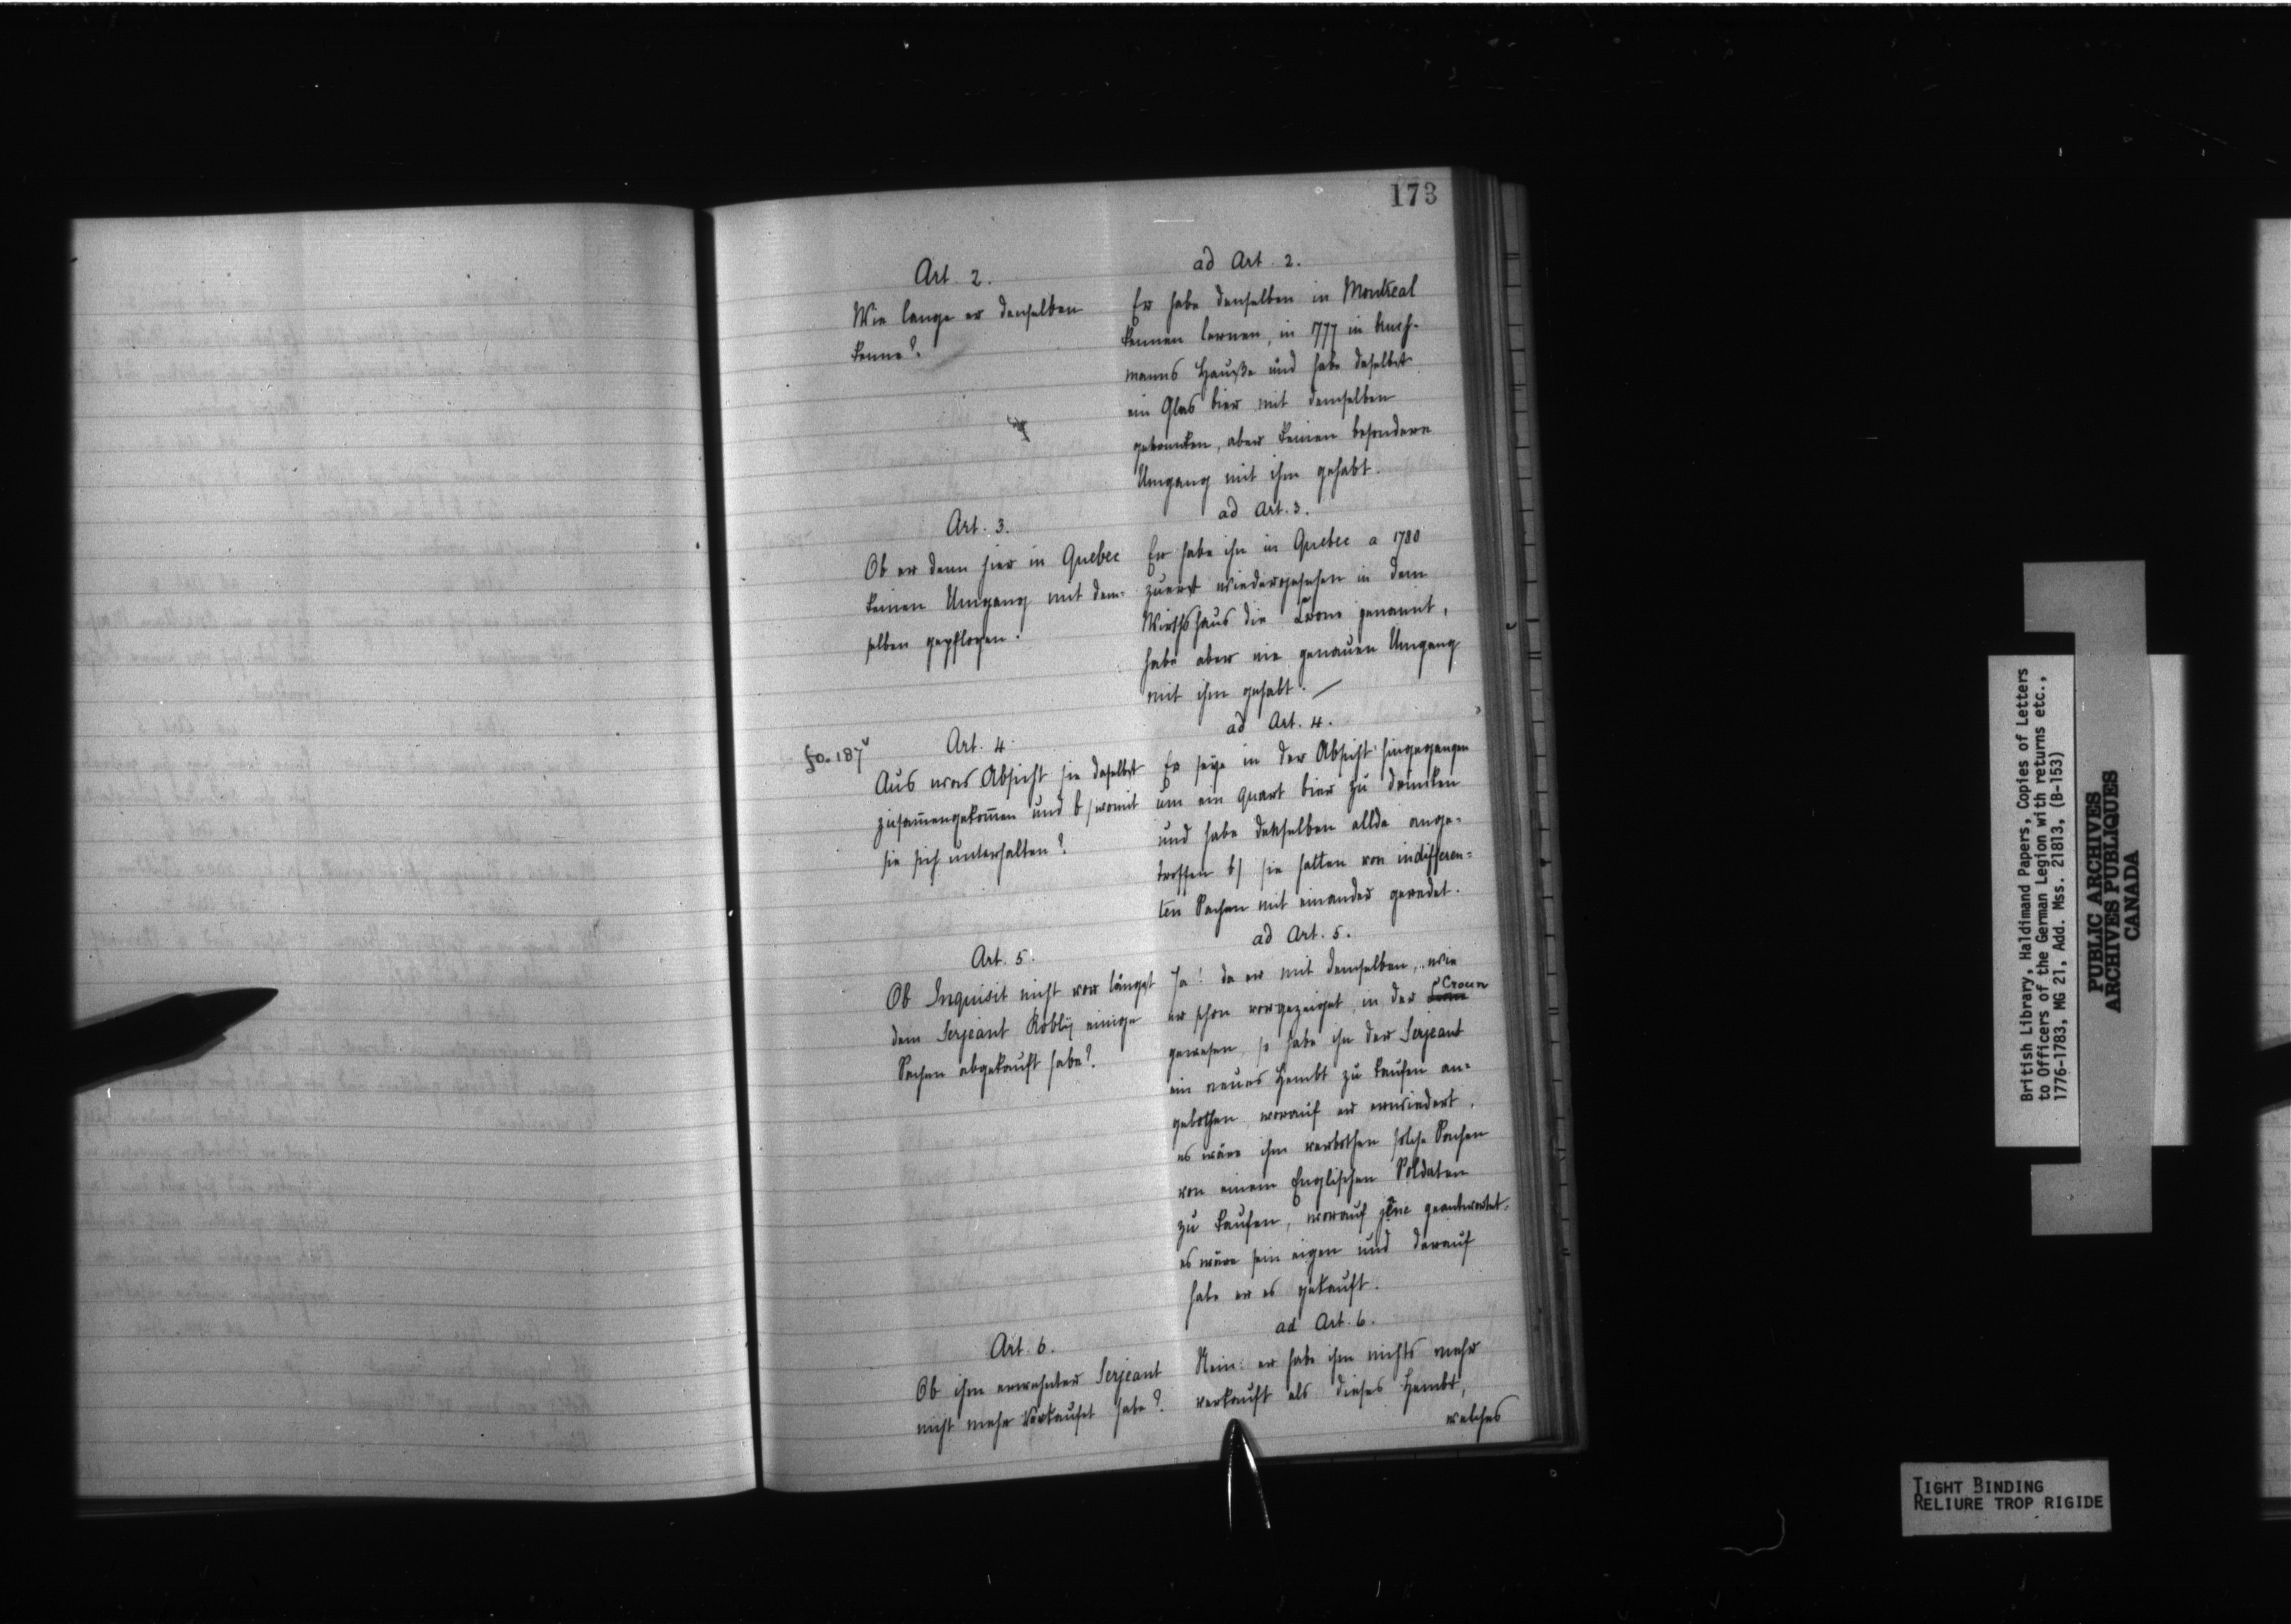 173
Art. 2.
Wie lange er denselben
kenne?
ad Art. 2.
Er habe denselben in Montreal
kennen lernen, in 1777 in Busch-
manns Hauße und habe daselbst
ein Glas bier mit demselben
getruncken, aber keinen besondern
Umgang mit ihm gehabt.
Art. 3.
Ob er denn hier in Quebec
keinen Umgang mit dem-
selben gepflogen.
ad Art. 3.
Er habe ihn in Quebec a 1780
zuerst wiedergesehen in dem
Wirthshaus die Crone genannt,
habe aber nie genauen Umgang
mit ihm gehabt. —
fo. 187v
Art. 4.
Aus was Absicht sie daselbst
zusammengekommen und b/ womit
sie sich unterhalten?
ad Art. 4.
Er seye in der Absicht hingegangen
um ein quart bier zu drincken
und habe denselben allda ange-
troffen b/ sie hätten von indifferen-
ten Sachen mit einander geredet.
Art. 5.
Ob Inquisit nicht vor längst
dem Serjeant Robly einige
Sachen abgekauft habe?
ad Art. 5.
Ja! da er mit demselben, wie
er schon vorgezeiget, in der Croun
gewesen, so habe ihn der Serjeant
ein neues Hembt zu kaufen an-
gebothen, worauf er erwiedert,
es wäre ihm verbothen solche Sachen
von einem Englischen Soldaten
zu kaufen, worauf jene geantwortet.
es wäre sein eigen und darauf
habe er es gekauft.
Art. 6.
Ob ihm erwehnter Serjeant
nicht mehr verkaufet habe?
ad Art. 6.
Nein: er habe ihm nichts mehr
verkauft als dieses Hembt,
welches
British Library, Haldimand Papers, Copies of Letters
to Officers of the German Legion with returns etc.,
1776-1783, MG 21, Add. Mss. 21813, (B-153)
PUBLIC ARCHIVES
ARCHIVES PUBLIQUES
CANADA
TIGHT BINDING
RELIURE TROP RIGIDE